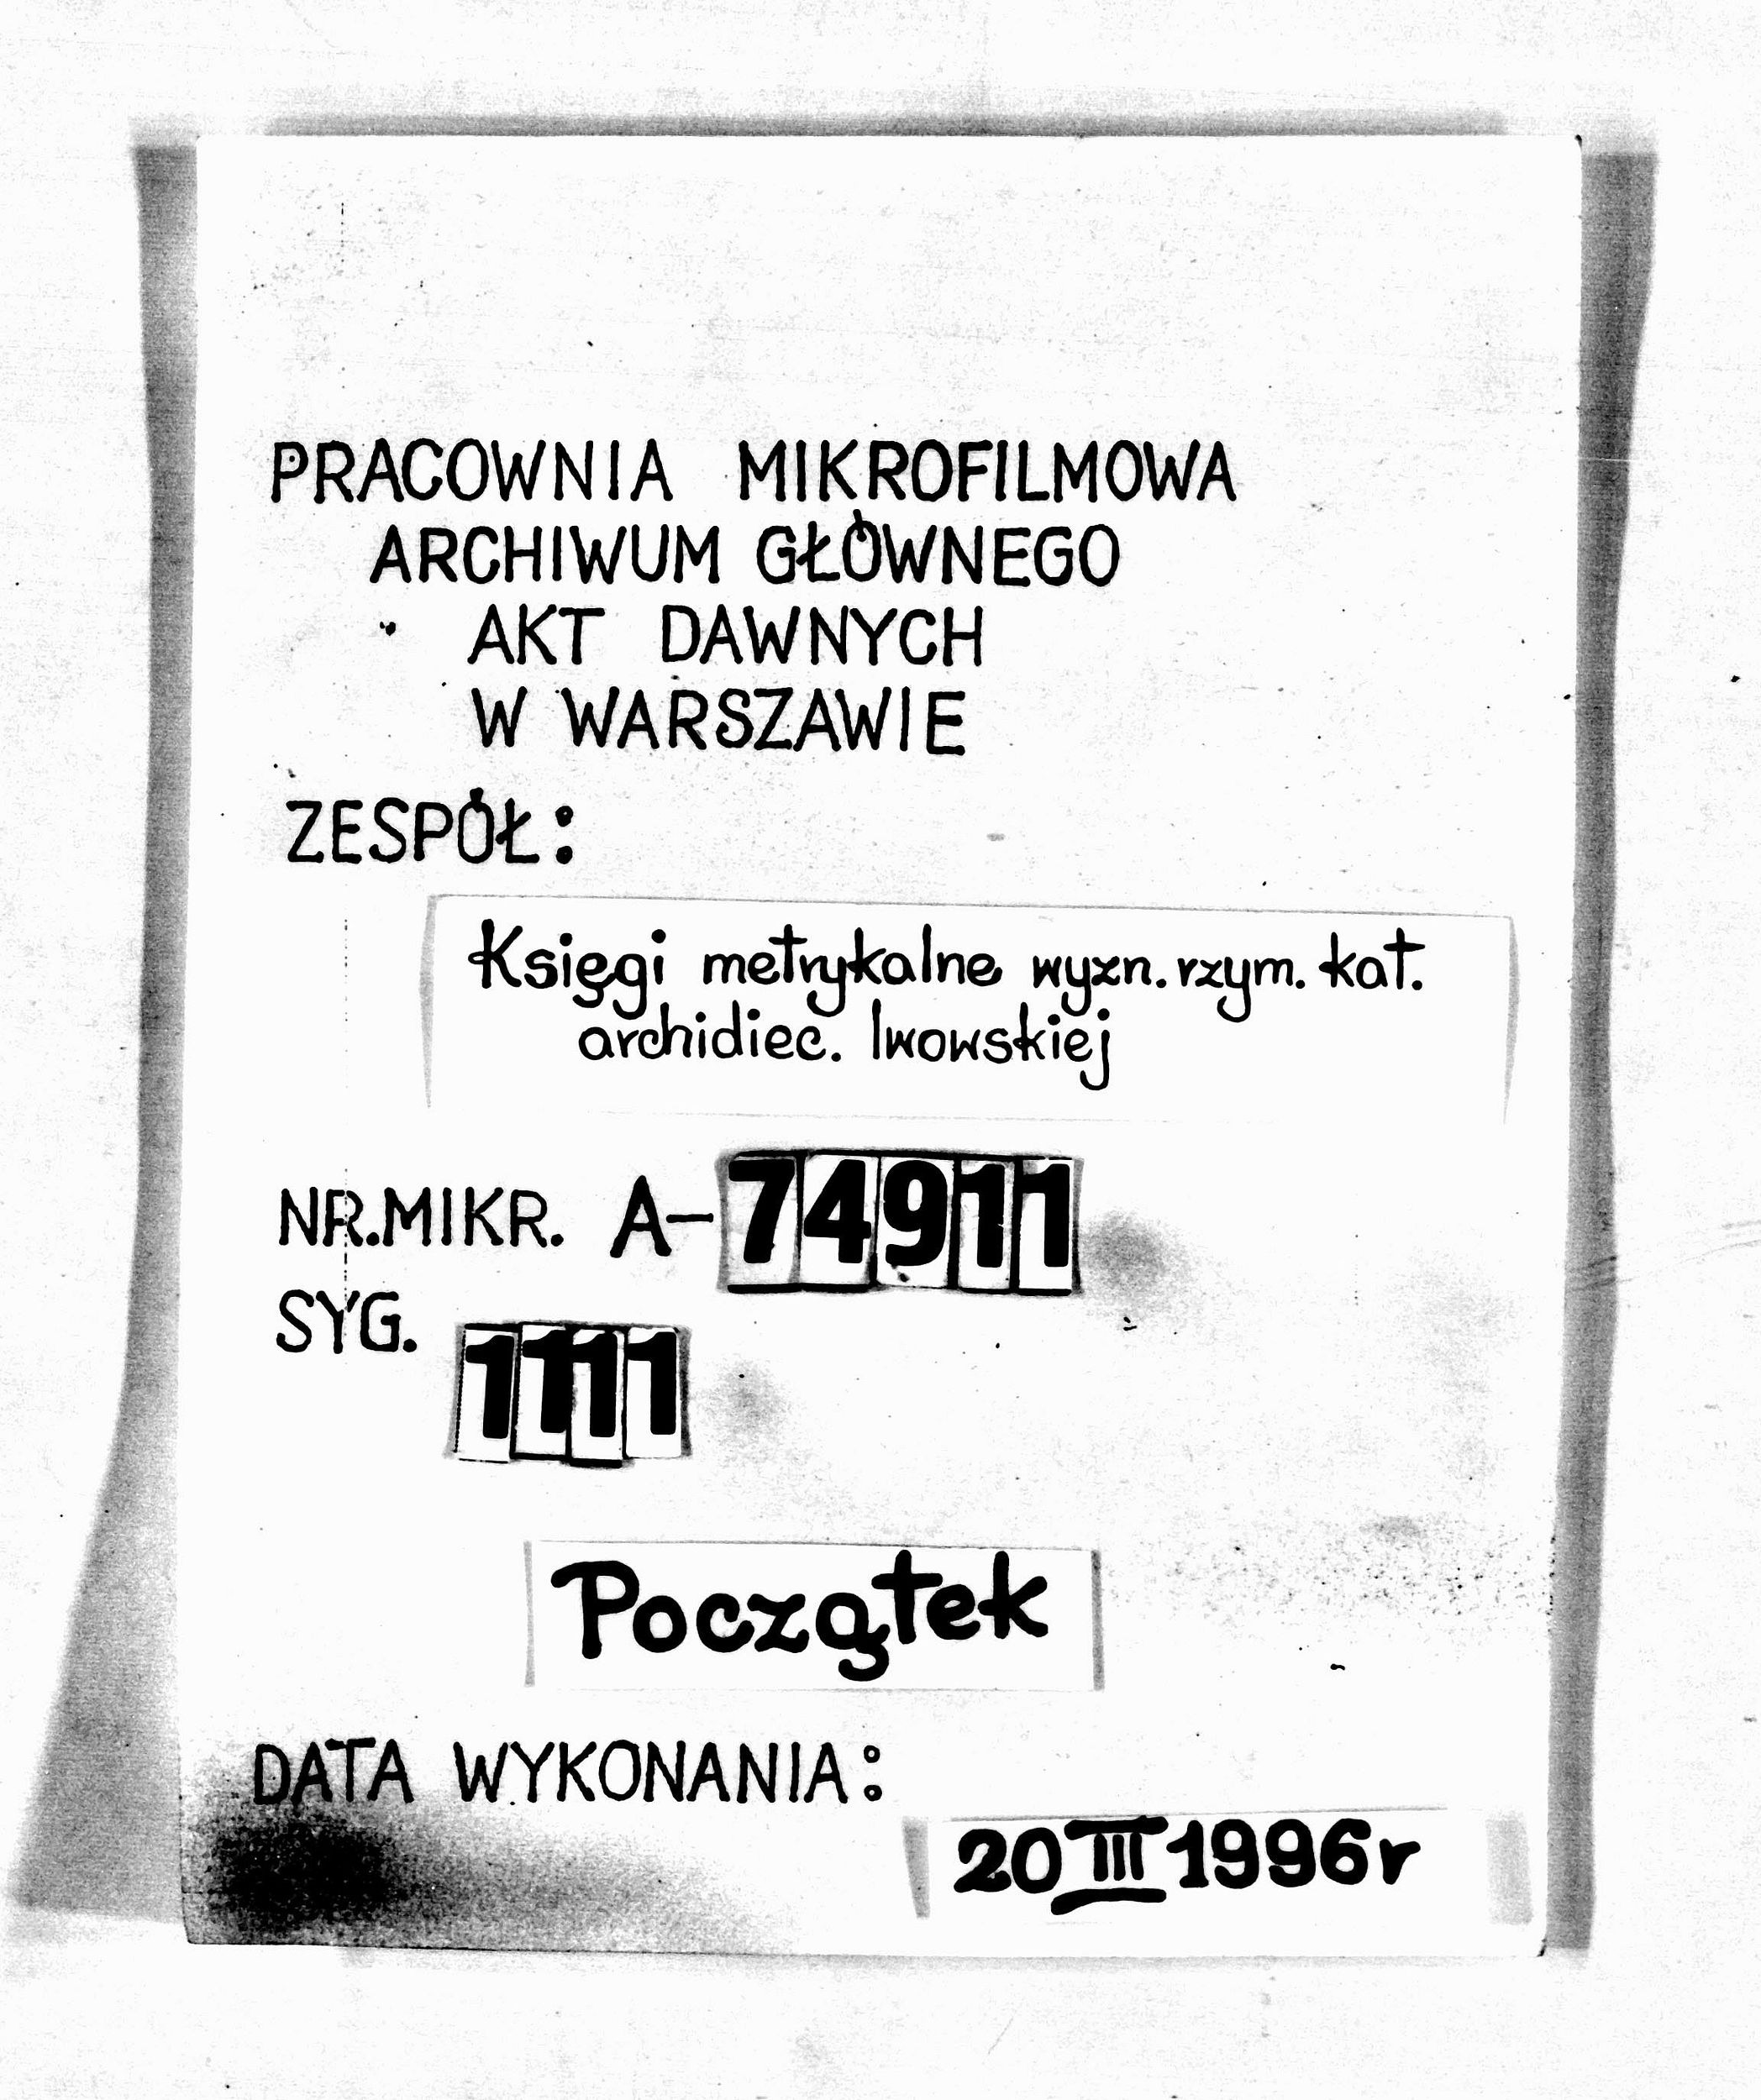 PRACOWNIA MIKROFILMOWA
ARCHIWUM GŁÓWNEGO
AKT DAWNYCH
W WARSZAWIE
ZESPÓŁ:
Księgi metrykalne wyzn. rzym. kat.
archidiec. lwowskiej
NR.MIKR. A-74911
SYG.
1111
Początek
DATA WYKONANIA:
20 III 1996r